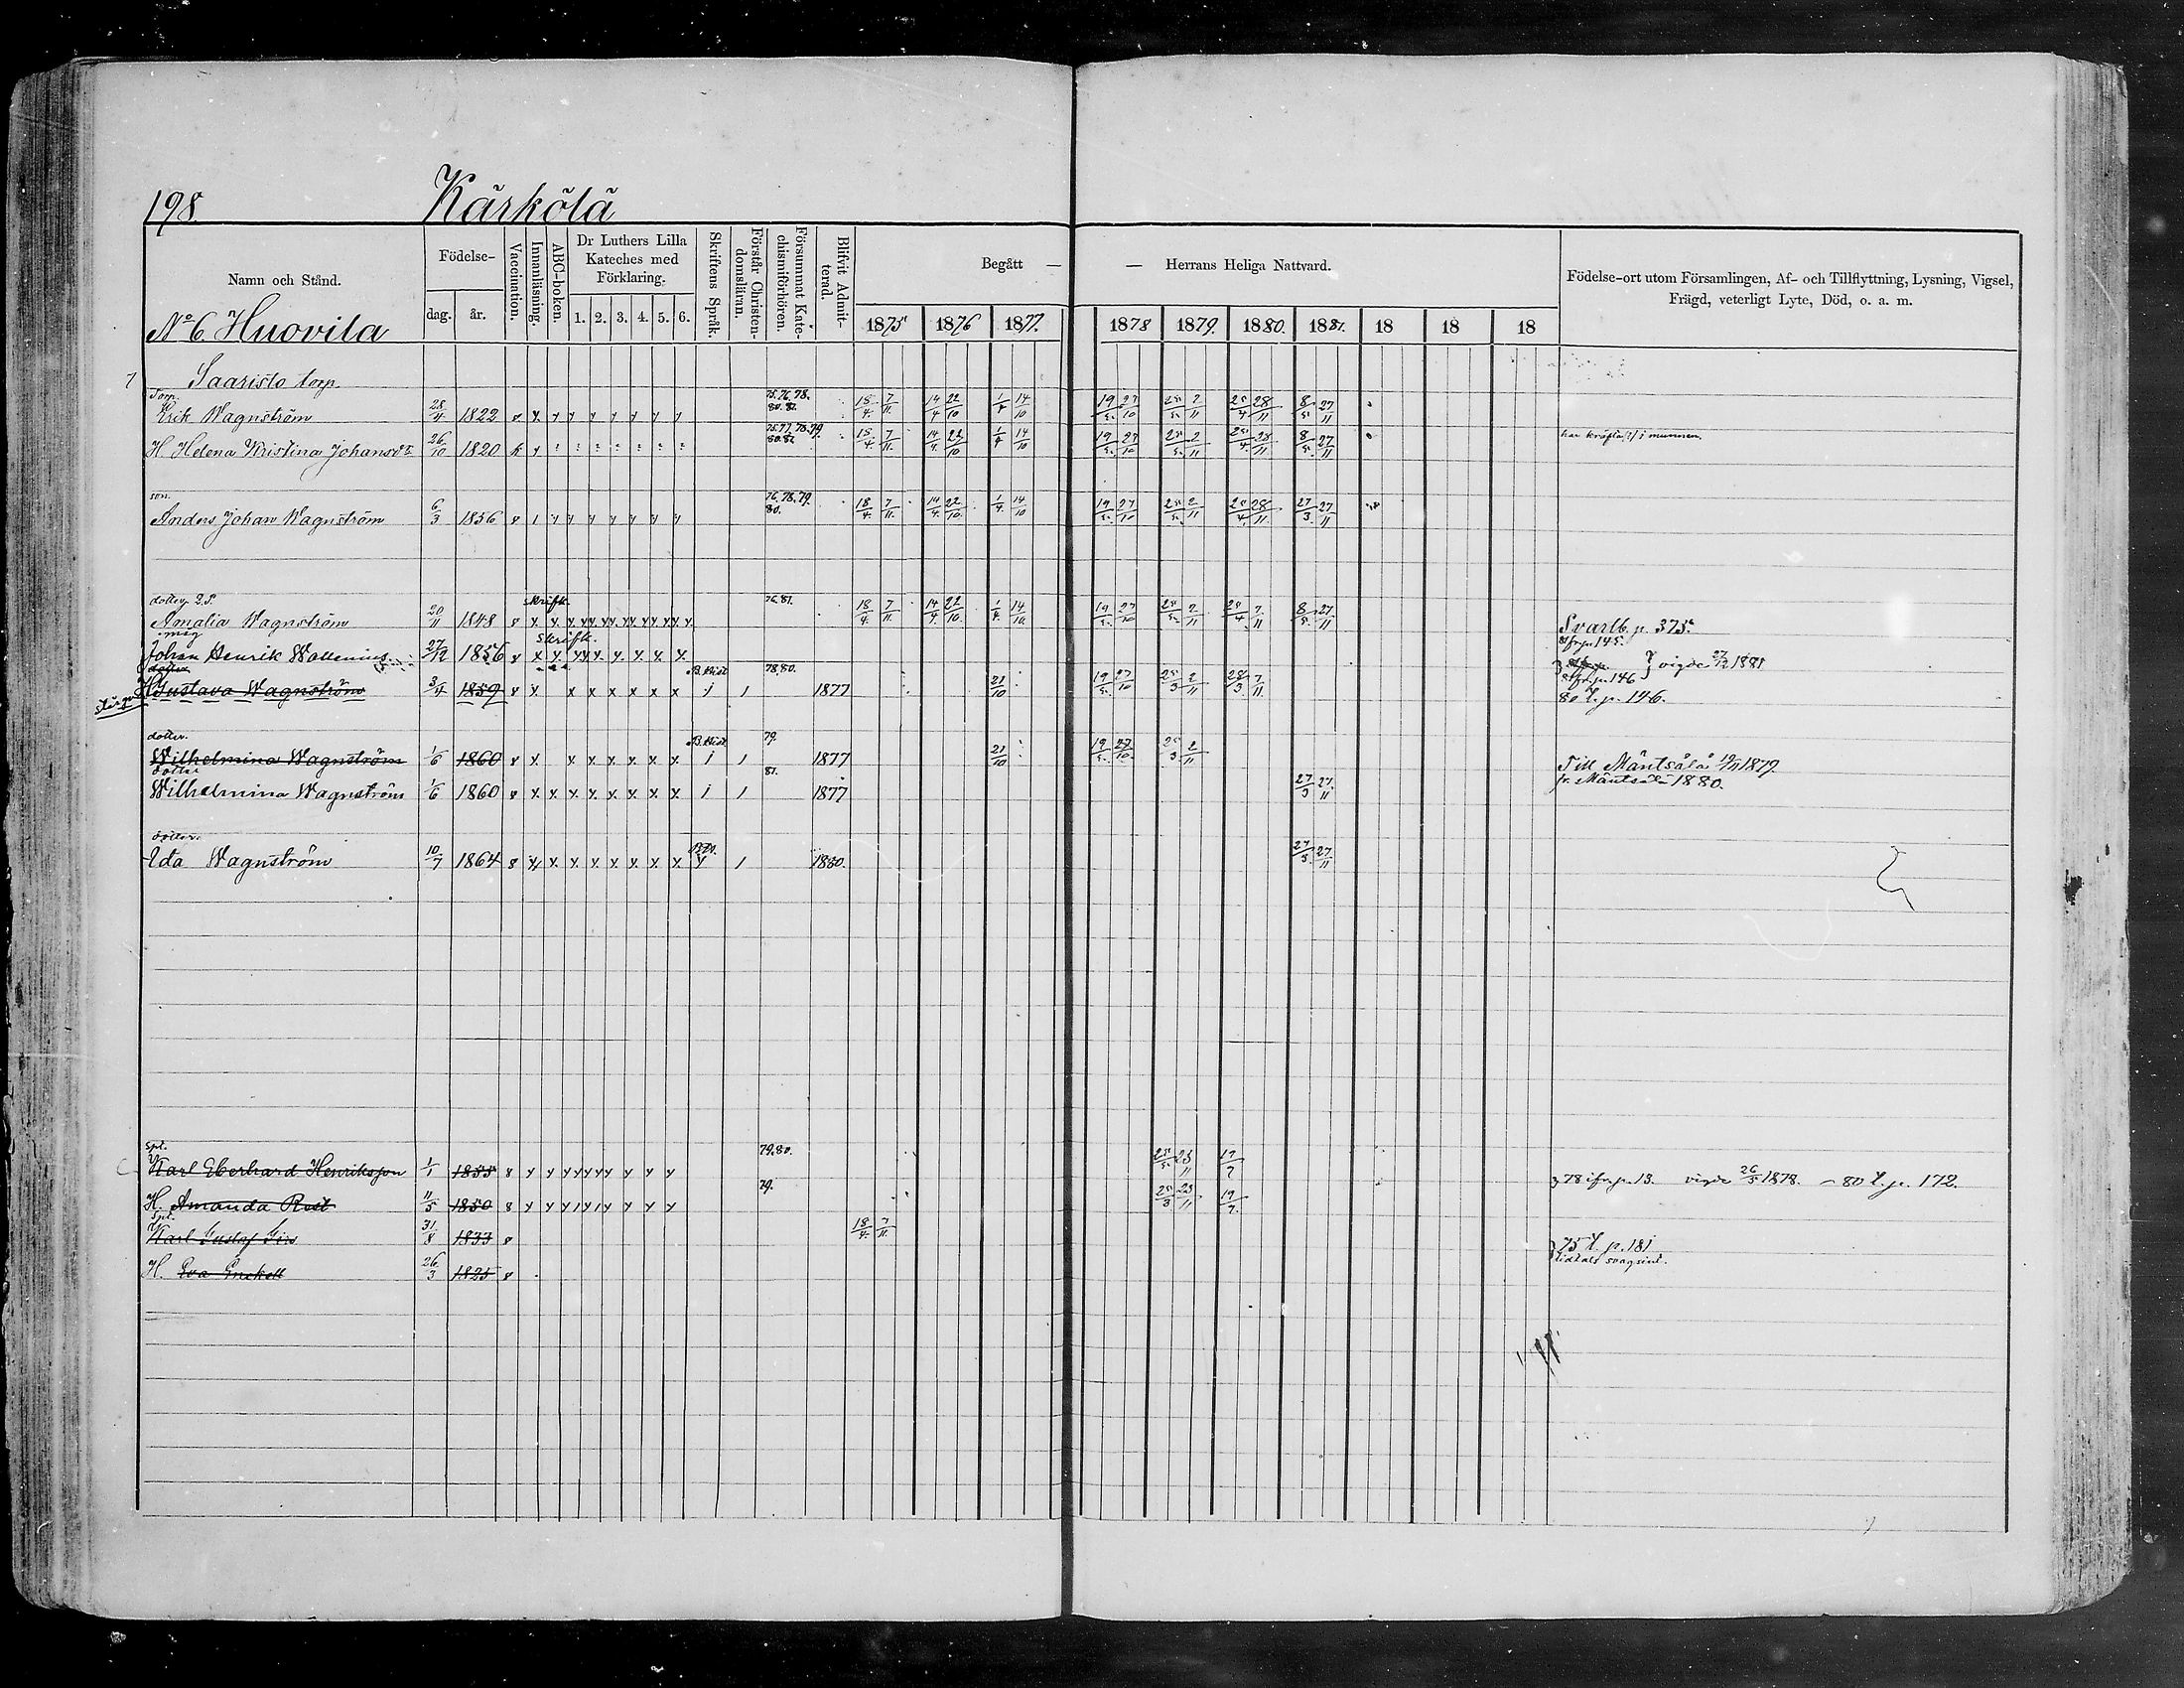 198. Kärkölä
Namn och Stånd. Födelse- dag. år. Vaccination. Innanläsning. ABC-boken. Dr Luthers Lilla Kateches med Förklaring. 1. 2. 3. 4. 5. 6. Skriftens Språk. Förstår Christendomsläran. Försummat Katechismiförhören. Blifvit Admitterad. Begått — — Herrans Heliga Nattvard. Födelse-ort utom Församlingen, Af- och Tillflyttning, Lysning, Vigsel, Frägd, veterligt Lyte, Död, o. a. m.
No 6. Huovila 1875 1876 1877. 1878 1879. 1880. 1881. 18 18 18
Saaristo torp.
Torp. 75. 76. 78. 80. 81.
Erik Wagnström 28/4 1822 15/4. 7/11. 14/4 22/10 1/4 14/10 19/5. 27/10 25/5. 2/11 25/4 28/11 8/5. 27/11
75. 77. 78. 79. 80. 81.
H. Helena Kristina Johansdr 26/10 1820 15/4. 7/11. 14/4. 22/10 1/4 14/10 19/5. 27/10 25/5. 2/11 25/4. 28/11 8/5. 27/11 i munnen.
son. 76. 78. 79. 80.
Anders Johan Wagnström 6/3 1856 18/4. 7/11. 14/4. 22/10. 1/4. 14/10 19/5. 27/10 25/5. 2/11 25/4. 28/11 27/3. 27/11
dotter skrifk. 76. 81.
Amalia Wagnström 20/11 1848 18/4. 7/11. 14/4. 22/10. 1/4. 14/10 19/5. 27/10 25/5. 2/11 25/4 7/11 8/5. 27/11 Svartb. p. 375.
måg skrifk.
Johan Henrik Wallenius 27/12 1856 ifr. p. 145. vigde 27/12 1881
dotter B. Hist 78. 80. ifr. p. 146
H. Gustava Wagnström 3/4 1859 1877 21/10 19/5. 27/10 25/3 2/11 28/3 7/11. 80 t. p. 146.
dotter. B. Hist 79.
Wilhelmina Wagnström 1/6 1860 1877 21/10 19/5. 27/10. 25/3 2/11 Till Mäntsälä 1879.
dotter 81.
Wilhelmina Wagnström 1/6 1860 1877 27/3 27/11 fr. Mäntsälä 1880.
dotter.
Ida Wagnström 10/7 1864 1880. 27/3. 27/11
spt. 79. 80.
Karl Eberhard Henriksson 1/1 1855 25/5. 23/11 19/7 78 ifr. p. 13. vigde 26/5 1878. – 80 t. p. 172.
79.
H. Amanda 11/5 1850 25/3 23/11 19/7.
Spt.
Karl Gustaf 31/8 1833 18/4. 7/11. 75 t. p. 181
H. Eva Enckell 26/3 1825 svagsint.